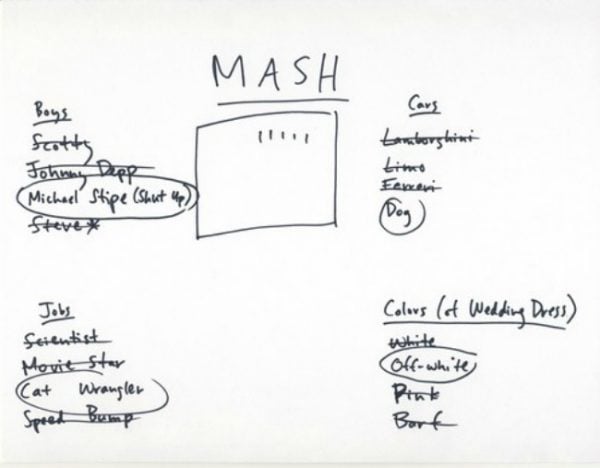 MASH
Boys
Scotty
Johnny Depp
Michael Stipe (Shut Up)
Steve*
Cars
Lamborghini
Limo
Ferrari
Dog
Jobs
Scientist
Movie Star
Cat Wrangler
Speed Bump
Colors (of Wedding Dress)
White
Off-white
Pink
Barf